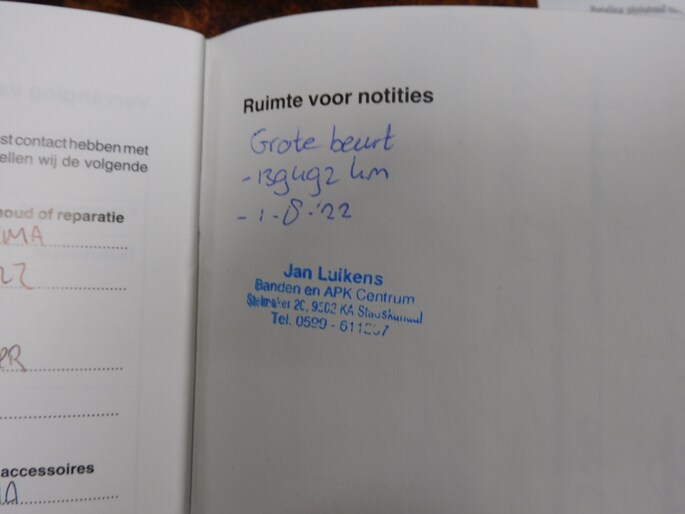 st contact hebben met
ellen wij de volgende
houd of reparatie
accessoires
Ruimte voor notities
Grote beurt
- 139492 km
- 1-8-'22
Jan Luikens
Banden en APK Centrum
20, 9502 KA
Tel. 0599 -